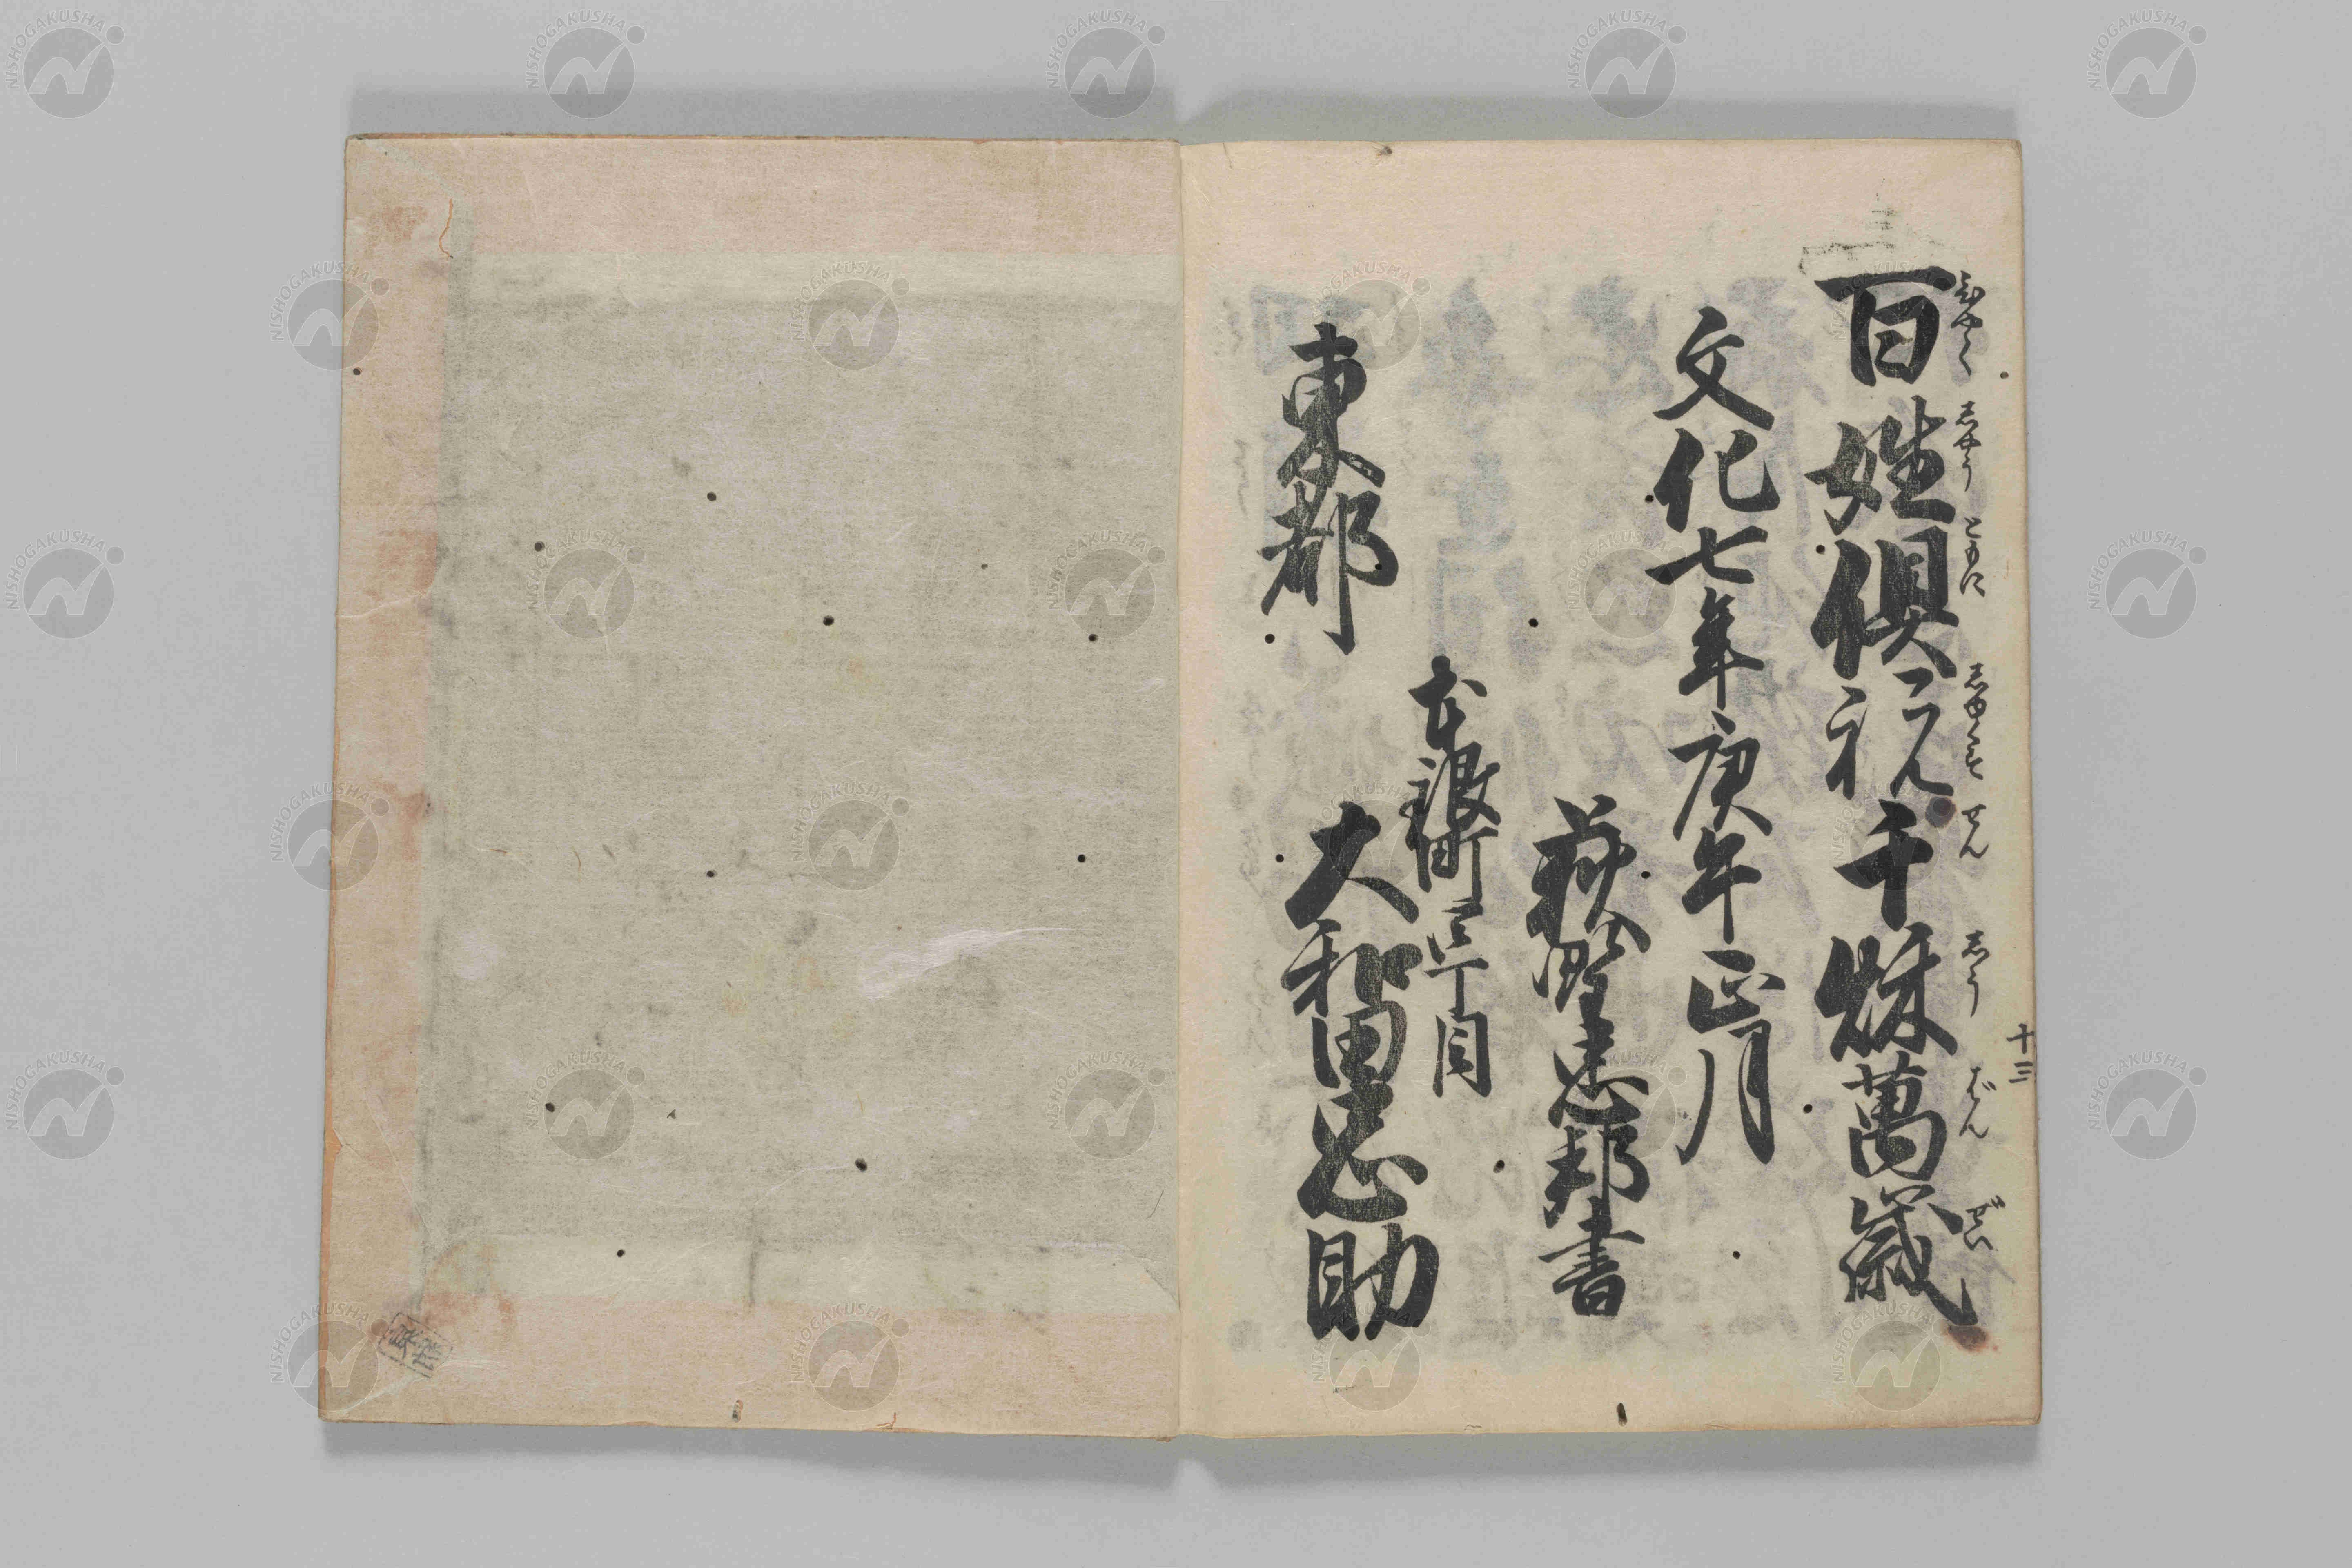 百姓倶祝千秌萬歳
ひやく しやう ともに しゆくす せん しう ばん ぜい
十三
文化七年庚午正月
萩野忠邦書
本銀町二丁目
東都
大和田忠助
NISHOGAKUSHA